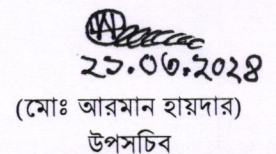 ২১.০৩.২০২৪
(মোঃ আরমান হায়দার)
উপসচিব